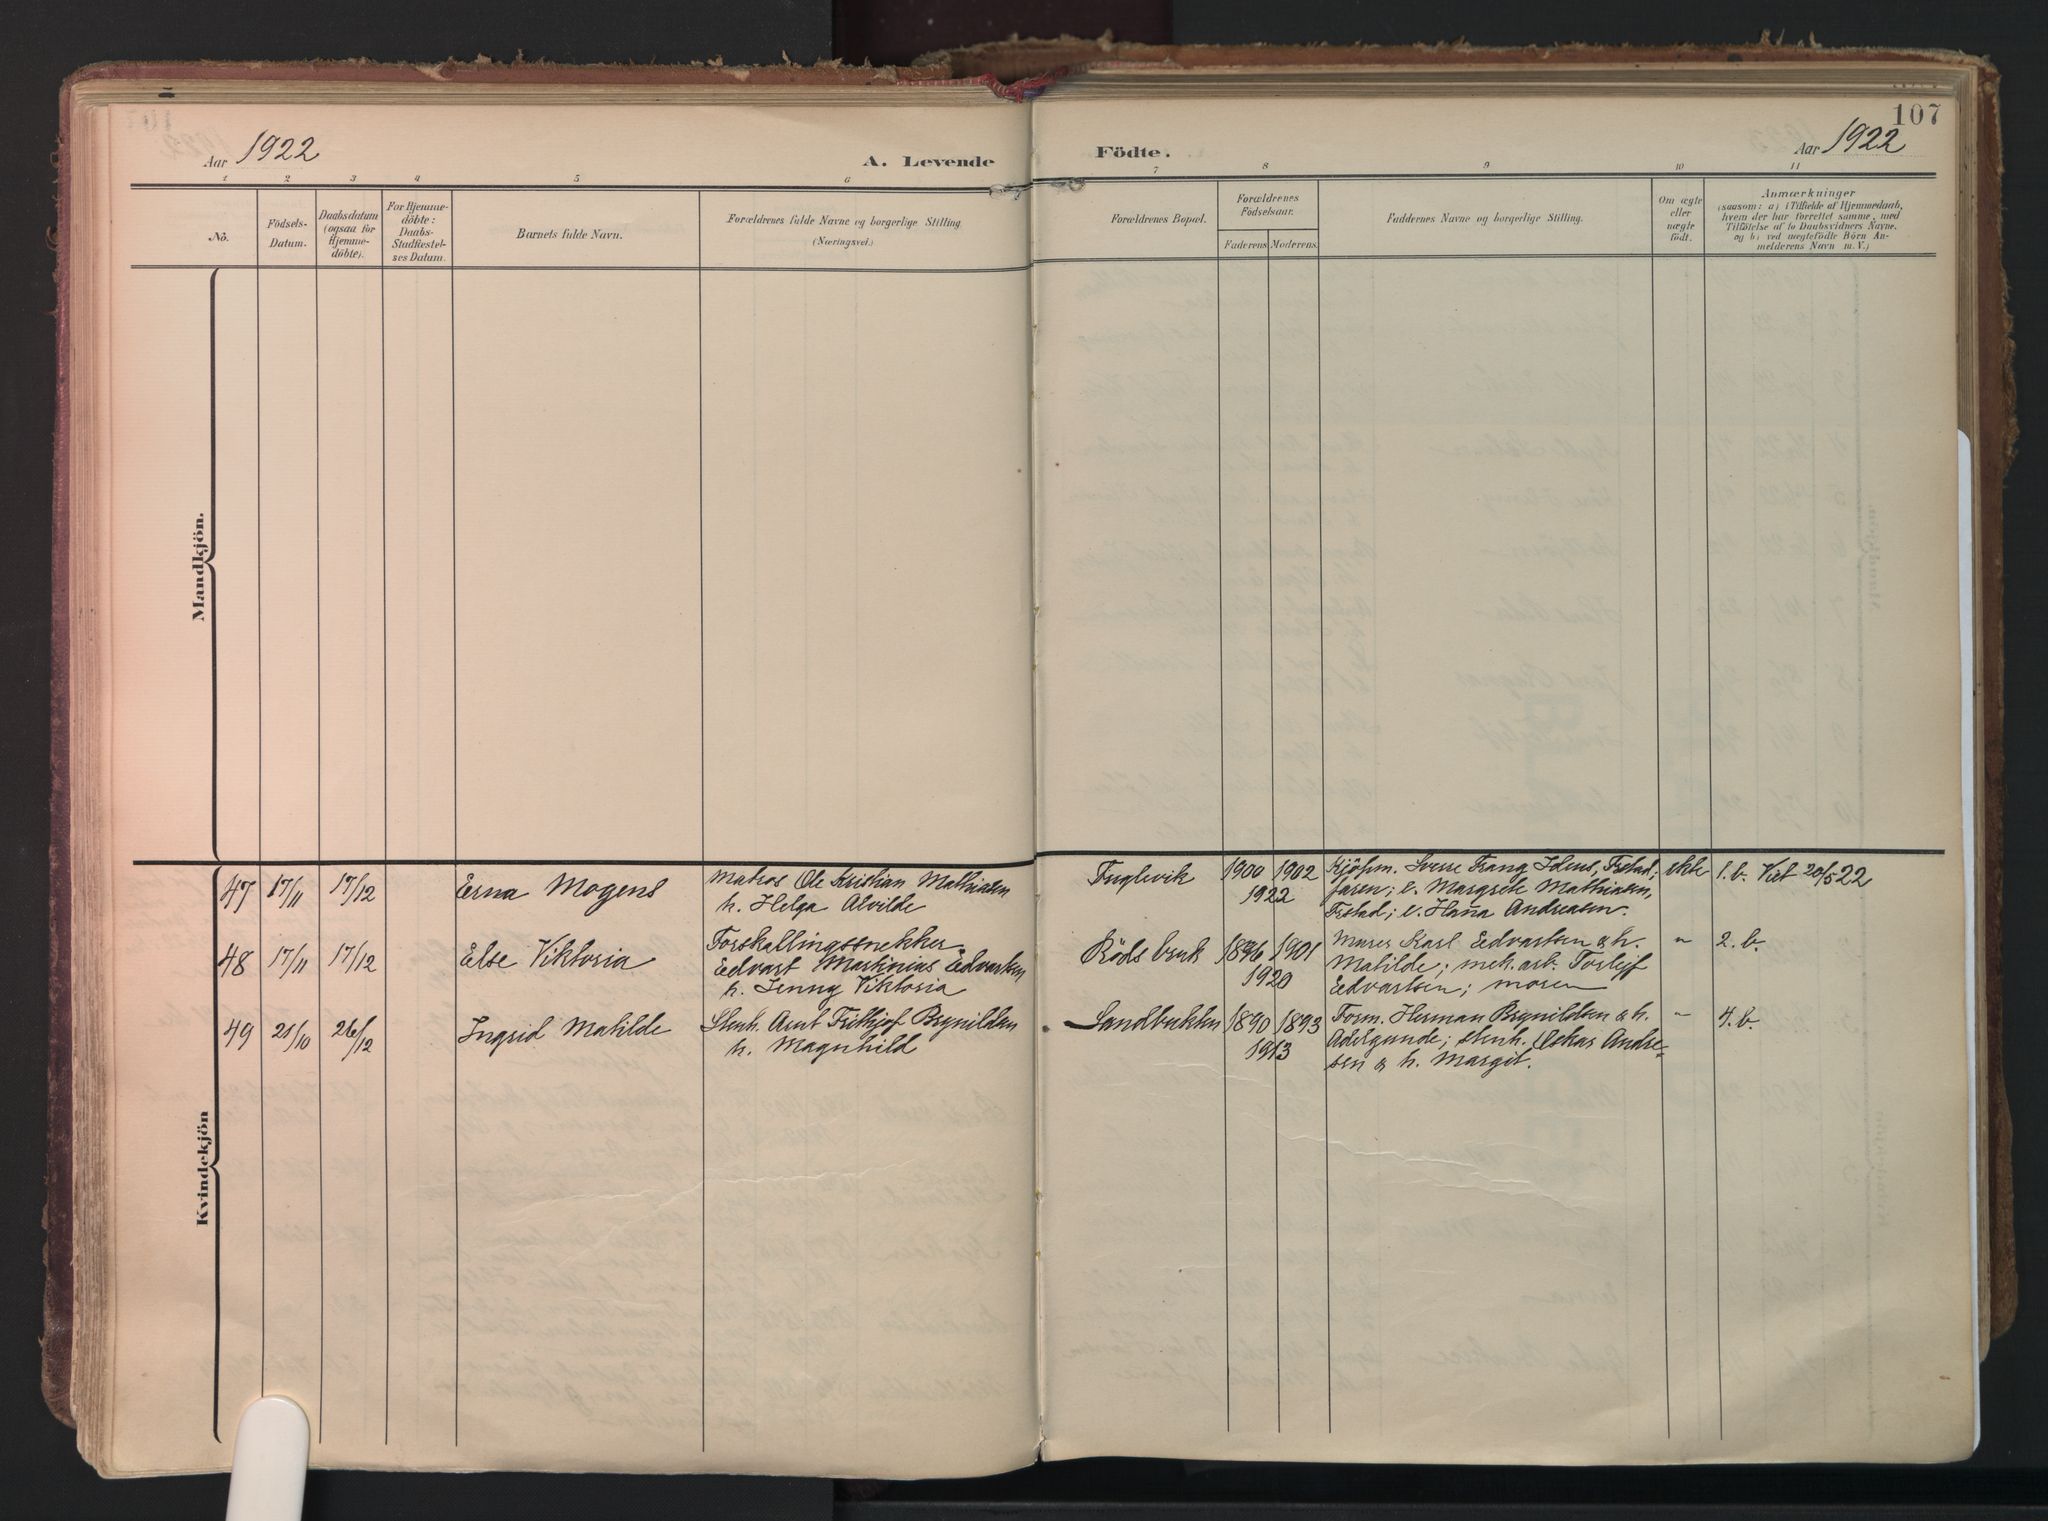 107
Aar 1922
A. Levende
Födte.
Aar 1922
1 2 3 4 5 6 7 8 9 10 11
No.
Födsels-
Datum.
Daabsdatum
(ogsaa for
Hjemme-
döbte).
For Hjemme-
döbte:
Daabs-
Stadfæstel-
ses Datum.
Barnets fulde Navn.
Forældrenes fulde Navne og borgerlige Stilling
(Næringsvei.)
Forældrenes Bopæl.
Forældrenes
Födselsaar.
Faderens Moderens.
Faddernes Navne og borgerlige Stilling.
Om ægte
eller
uægte
födt.
Anmærkninger
(saasom: a) i Tilfælde af Hjemmedaab,
hvem der har forrettet samme, med
Tilföielse af to Daabsvidners Navne.
og b) ved uægtefödte Börn An-
melderens Navn m. V.)
Mandkjön.
Kvindekjön
47 17/11 17/12 Erna Mogens
Matros Ole Kristian Mathiasen
h. Helga Alvilde
Fuglevik 1900 1902
1922
Kjöpm. Sverre Frang Idens, Frstad;
faren; e. Margrete Mathiasen,
Frstad; e. Hanna Andreasen.
ekte 1. b. Viet 20/5 22
48 17/11 17/12 Else Viktoria
Forskallingssnekker
Edvart Martinius Edvartsen
h. Jenny Viktoria
Röds bruk 1896 1901
1920
Murer Karl Edvartsen & h.
Matilde; mek. arb. Torleif
Edvartsen; moren
" 2. b.
49 21/10 26/12 Ingrid Matilde
Stenh. Arnt Fritjof Brynildsen
h. Magnhild
Sandbukten 1890 1893
1913
Form. Herman Brynildsen & h.
Adelgunde; stenh. Oskar Andre-
sen & h. Margit.
" 4. b.